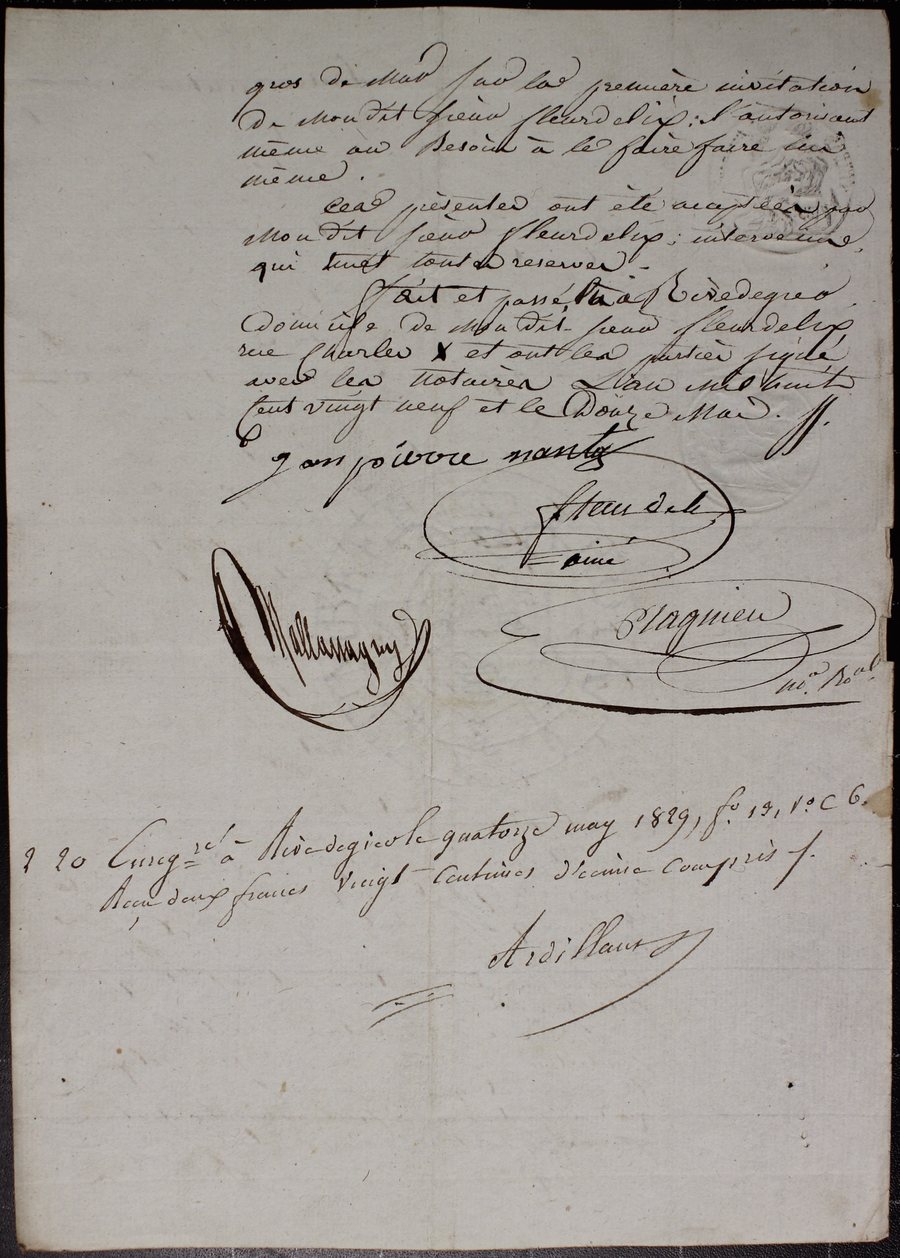 gros de Mar sur la première invitation
de Mondit sieur fleurdelix; l'autorisant
même au Besoin à le faire faire lui
même.
ces présentes ont été acceptées par
Mondit sieur fleurdelix; intervenue,
qui sous toutes reserves
fait et passé à Rivedegier
Domicile de Mondit sieur fleurdelix,
rue Charles X et ont les parties signé
avec les notaires L'an mil huit
Cent vingt neuf et le Douze Mai.
jean pierre nanta
fleurdelix
ainé
Mallassagny
Plagnieu
no. Roal
2 20 Enregré à Rivedegier le quatorze may 1829, fo. 19, Vo C 6.
Reçu deux francs vingt centimes décime compris
Ardillaut